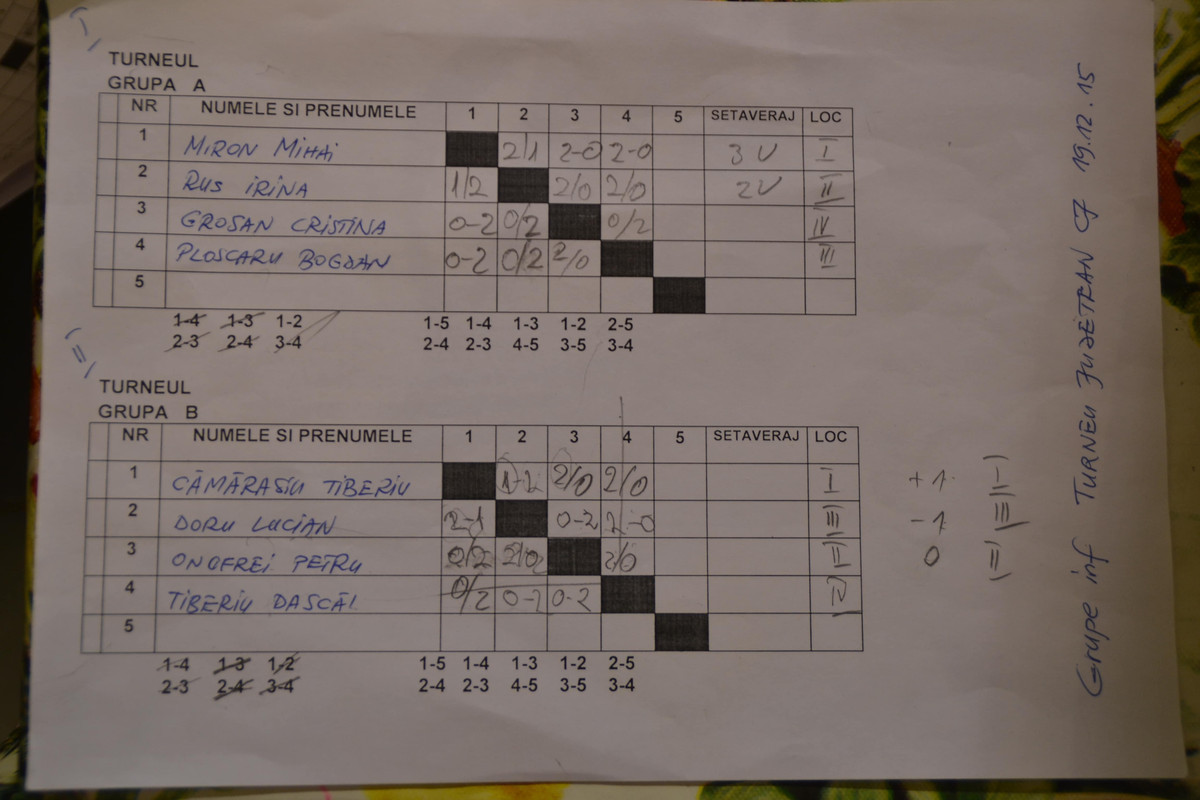 I
TURNEUL
GRUPA A
NR NUMELE SI PRENUMELE 1 2 3 4 5 SETAVERAJ LOC
1 MIRON MIHAI 2/1 2-0 2-0 3V I
2 RUS IRINA 1/2 2/0 2/0 2V II
3 GROSAN CRISTINA 0-2 0/2 0/2 IV
4 PLOSCARU BOGDAN 0-2 0/2 2/0 III
5
1-4 1-3 1-2 1-5 1-4 1-3 1-2 2-5
2-3 2-4 3-4 2-4 2-3 4-5 3-5 3-4
II
TURNEUL
GRUPA B
NR NUMELE SI PRENUMELE 1 2 3 4 5 SETAVERAJ LOC
1 CĂMĂRASIU TIBERIU 1-2 2/0 2/0 I + 1 I
2 DORU LUCIAN 2-1 0-2 2-0 III - 1 III
3 ONOFREI PETRU 0/2 2/0 2/0 II 0 II
4 TIBERIU DASCĂL 0/2 0-2 0-2 IV
5
1-4 1-3 1-2 1-5 1-4 1-3 1-2 2-5
2-3 2-4 3-4 2-4 2-3 4-5 3-5 3-4
Grupe inf TURNEU 19.12.15